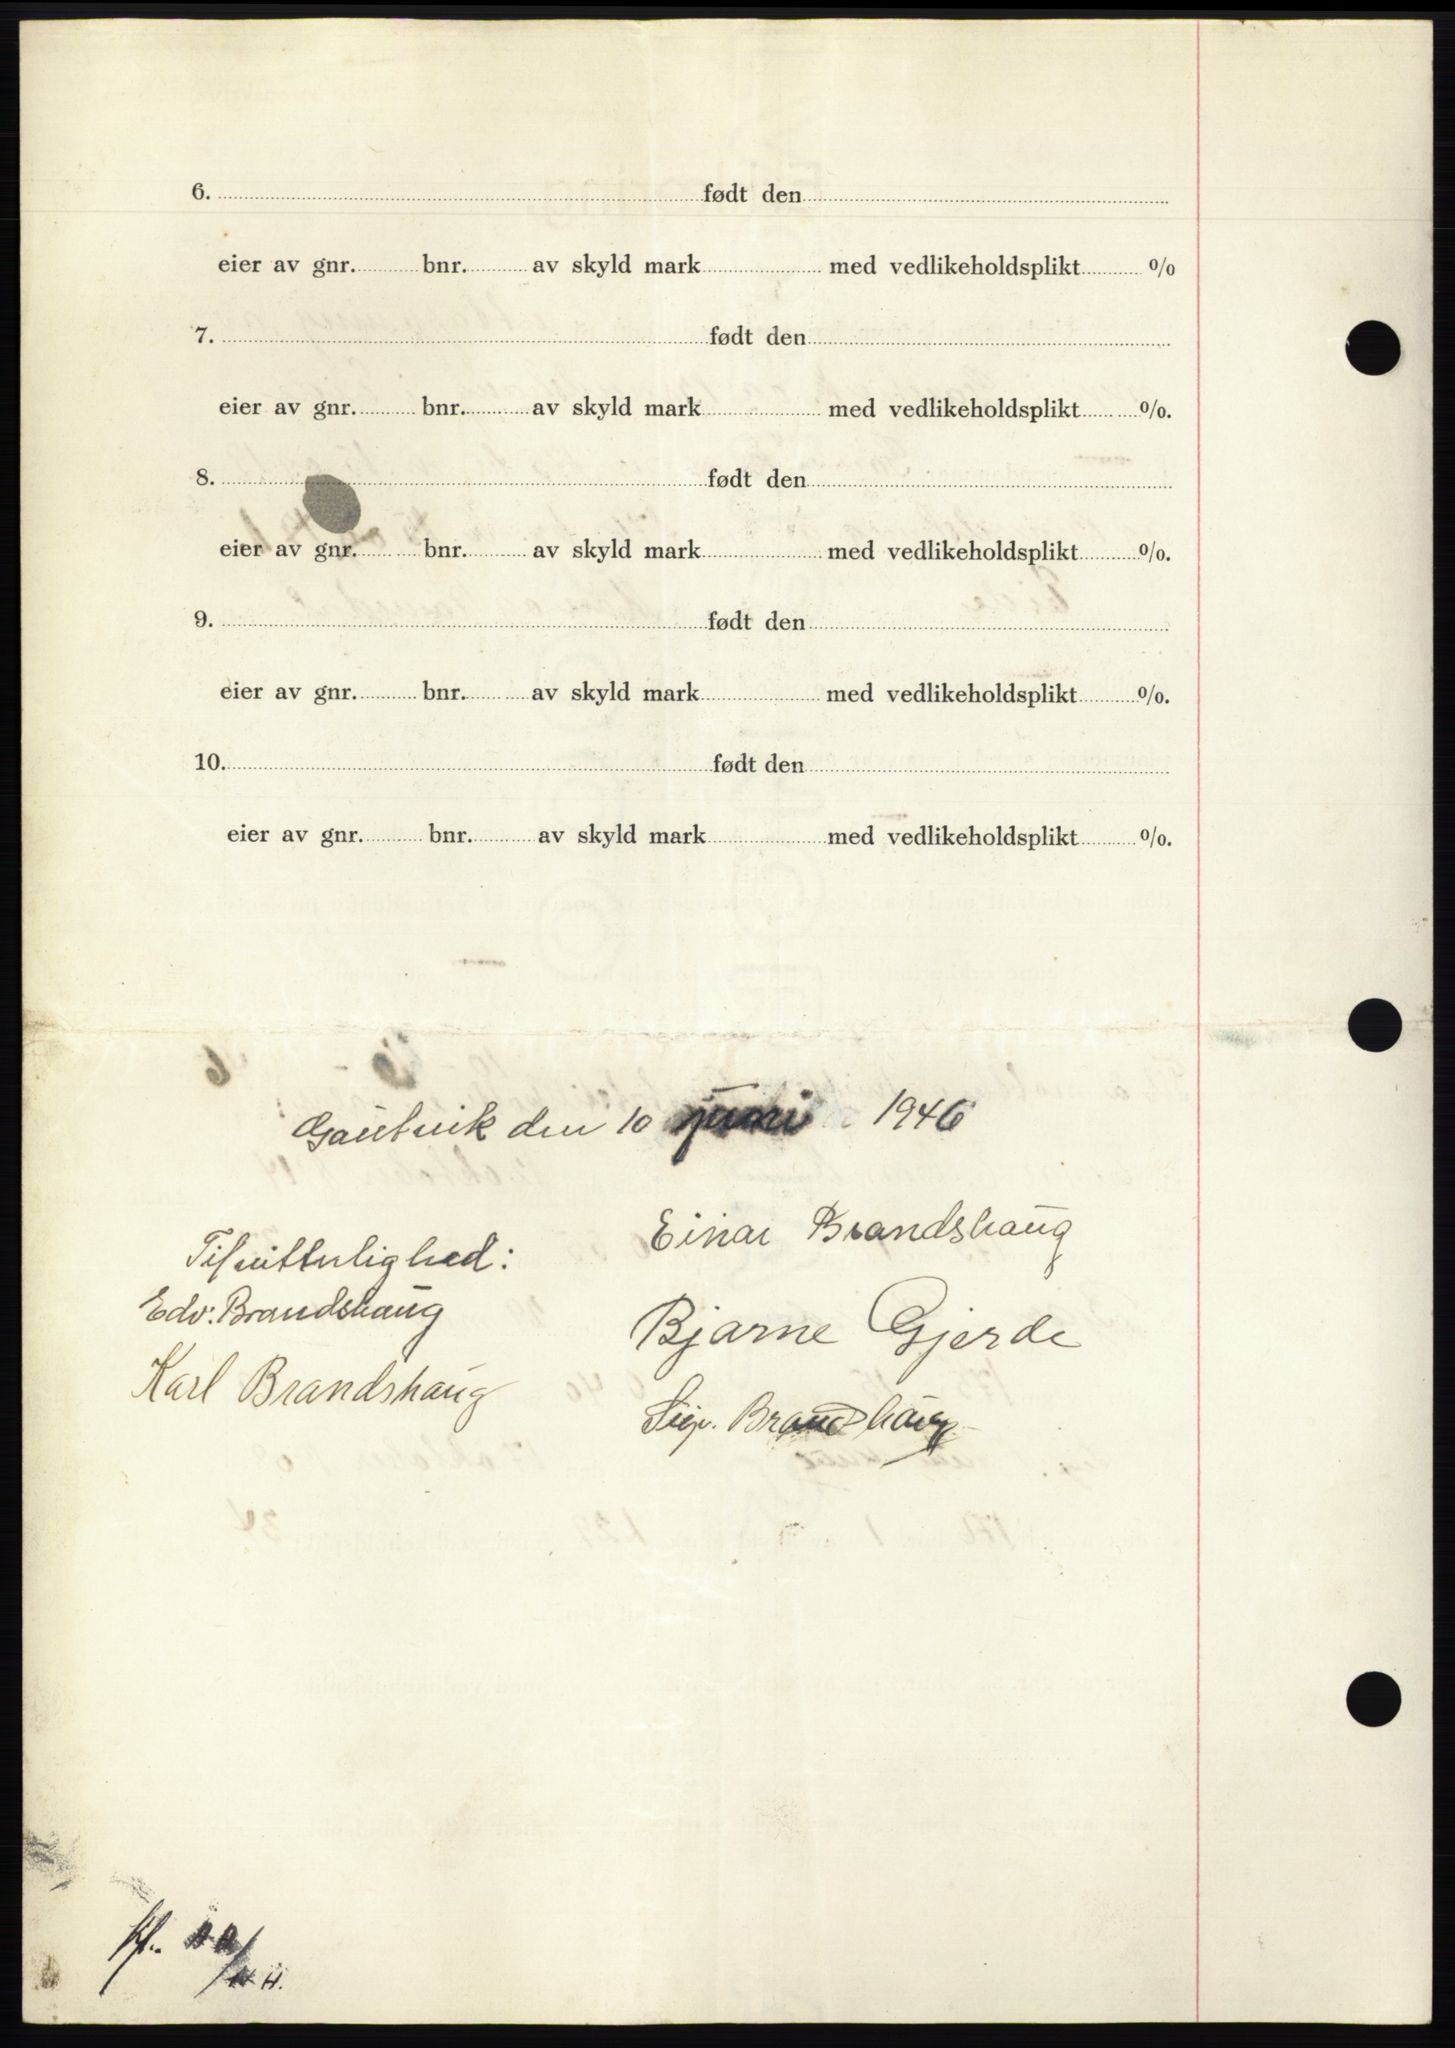 6. født den
eier av gnr. bnr. av skyld mark med vedlikeholdsplikt %
7. født den
eier av gnr. bnr. av skyld mark med vedlikeholdsplikt %.
8. født den
eier av gnr. bnr. av skyld mark med vedlikeholdsplikt %.
9. født den
eier av gnr. bnr. av skyld mark med vedlikeholdsplikt %.
10. født den
eier av gnr. bnr. av skyld mark med vedlikeholdsplikt %.
Gautvik den 10 juni 1946
Einar Brandshaug
Tilvitterlighed:
Edv. Brandshaug
Bjarne Gjerde
Karl Brandshaug
Sigv. Brandshaug